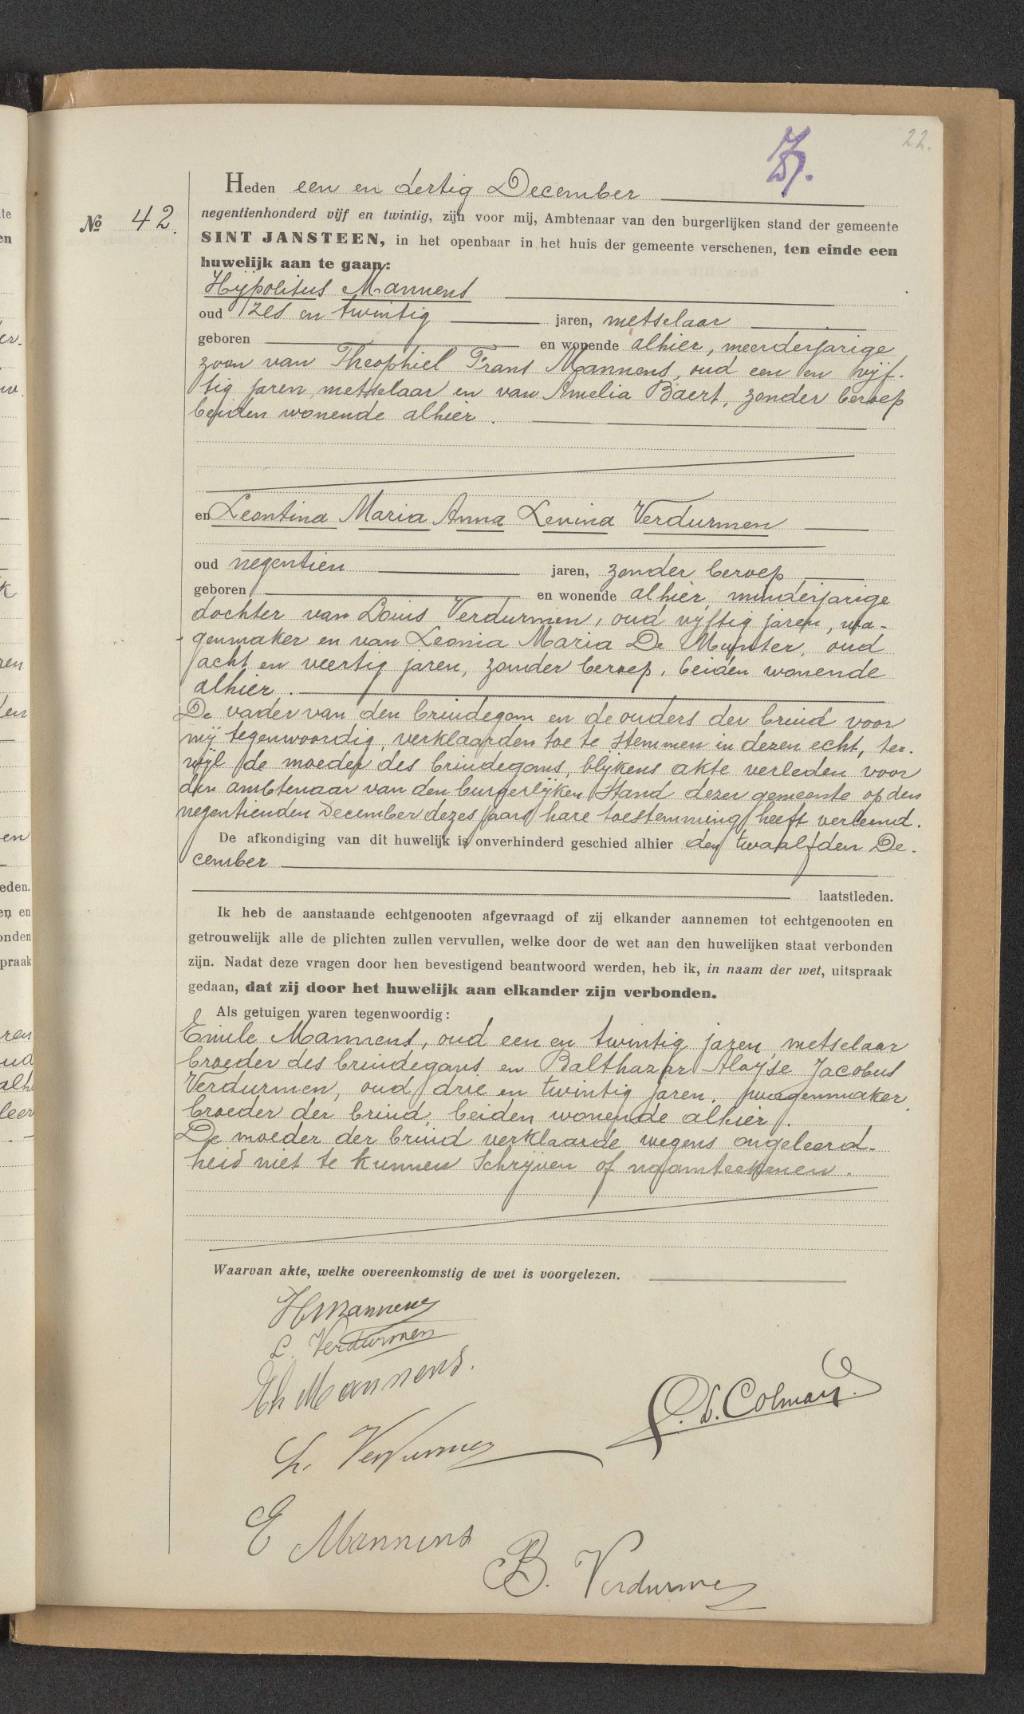 22.
Heden een en dertig December
№ 42.
negentienhonderd vijf en twintig, zijn voor mij, Ambtenaar van den burgerlijken stand der gemeente
SINT JANSTEEN, in het openbaar in het huis der gemeente verschenen, ten einde een
huwelijk aan te gaan:
Hijpolitus Mannens
oud zes en twintig jaren, metselaar
geboren en wonende alhier, meerderjarige
zoon van Theophiel Frans Mannens, oud een en vijf-
tig jaren, metselaar en van Amelia Baert, zonder beroep
beiden wonende alhier.
en Leontina Maria Anna Levina Verdurmen
oud negentien jaren, zonder beroep
geboren en wonende alhier, minderjarige
dochter van Louis Verdurmen, oud vijftig jaren, wa-
genmaker en van Leonia Maria De Munter, oud
acht en veertig jaren, zonder beroep, beiden wonende
alhier.
De vader van den bruidegom en de ouders der bruid voor
mij tegenwoordig, verklaarden toe te stemmen in dezen echt, ter-
wijl de moeder des bruidegoms, blijkens akte verleden voor
den ambtenaar van den burgerlijken Stand dezer gemeente op den
negentienden December dezes jaars hare toestemming heeft verleend.
De afkondiging van dit huwelijk is onverhinderd geschied alhier den twaalfden De-
cember
laatstleden.
Ik heb de aanstaande echtgenooten afgevraagd of zij elkander aannemen tot echtgenooten en
getrouwelijk alle de plichten zullen vervullen, welke door de wet aan den huwelijken staat verbonden
zijn. Nadat deze vragen door hen bevestigend beantwoord werden, heb ik, in naam der wet, uitspraak
gedaan, dat zij door het huwelijk aan elkander zijn verbonden.
Als getuigen waren tegenwoordig:
Emile Mannens, oud een en twintig jaren, metselaar
broeder des bruidegoms en Balthazar Aloijse Jacobus
Verdurmen, oud drie en twintig jaren, wagenmaker,
broeder der bruid, beiden wonende alhier.
De moeder der bruid verklaarde wegens ongeleerd-
heid niet te kunnen schrijven of naamteekenen.
Waarvan akte, welke overeenkomstig de wet is voorgelezen.
H Mannens
L. Verdurmen
Th Mannens.
L. Verdurmen
L. Colman
E Mannens
B. Verdurmen